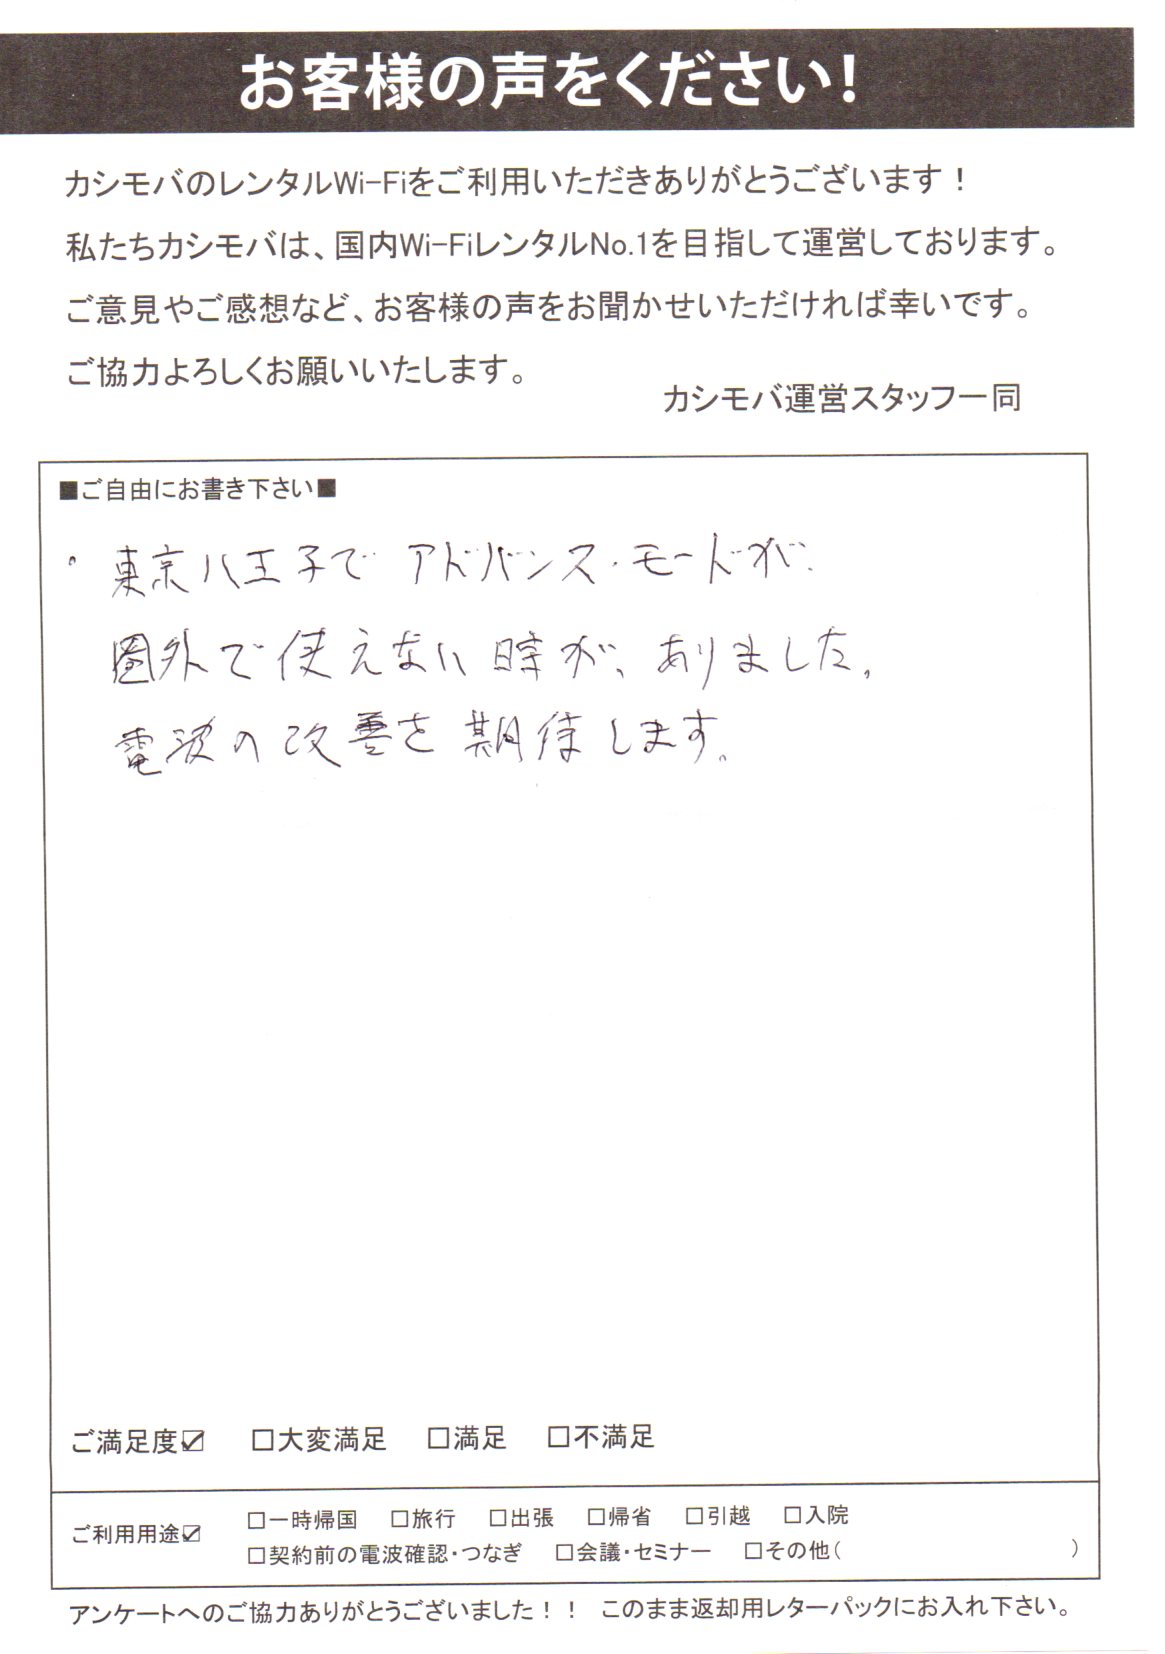 お客様の声をください！
カシモバのレンタルWi-Fiをご利用いただきありがとうございます！
私たちカシモバは、国内Wi-FiレンタルNo.1を目指して運営しております。
ご意見やご感想など、お客様の声をお聞かせいただければ幸いです。
ご協力よろしくお願いいたします。
カシモバ運営スタッフ一同
■ご自由にお書き下さい■
・東京八王子でアドバンス・モードが、
圏外で使えない時が、ありました。
電波の改善を期待します。
ご満足度☑ □大変満足 □満足 □不満足
ご利用用途☑ □一時帰国 □旅行 □出張 □帰省 □引越 □入院
□契約前の電波確認・つなぎ □会議・セミナー □その他（ ）
アンケートへのご協力ありがとうございました！！ このまま返却用レターパックにお入れ下さい。